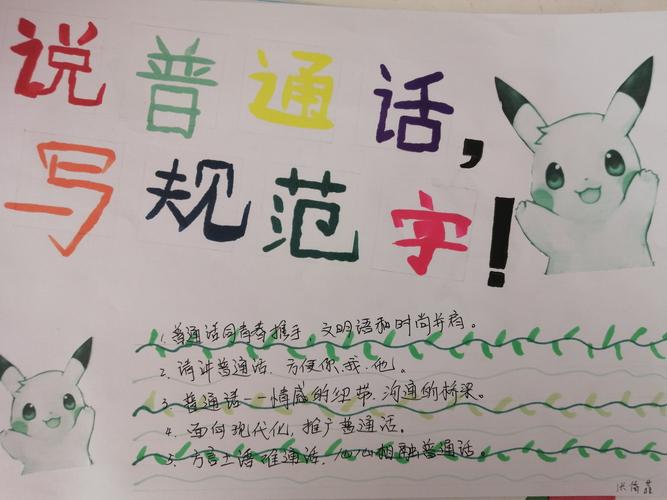 说普通话,
写规范字!
1. 普通话同青春携手,文明语和时尚并肩。
2. 请讲普通话.方便你.我.他。
3. 普通话--情感的纽带,沟通的桥梁。
4. 面向现代化,推广普通话。
5. 方言土语难通话,心心相融普通话。